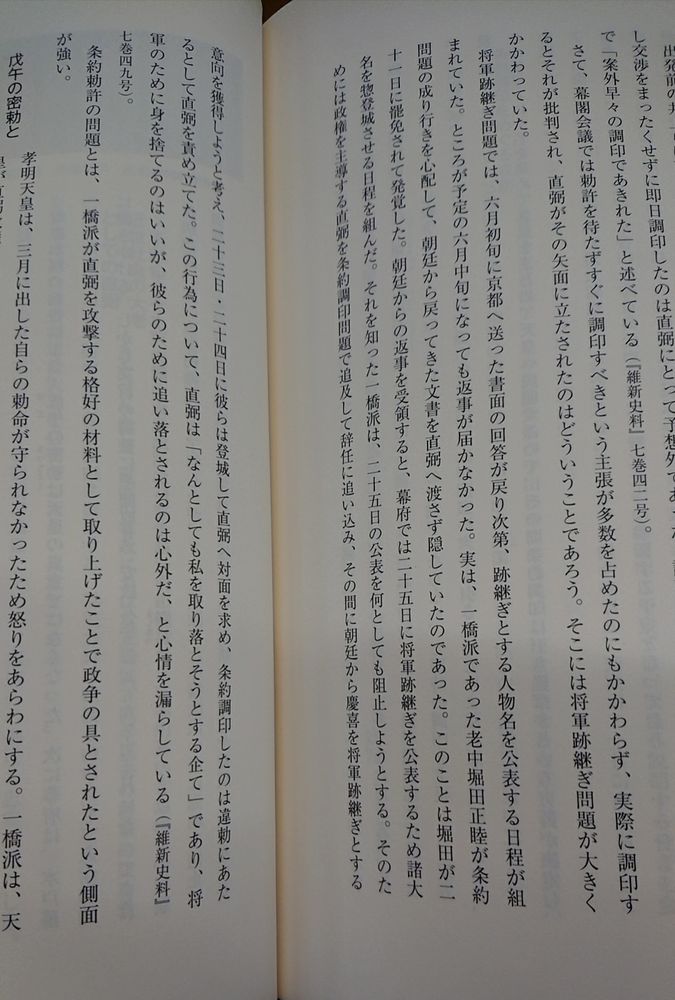 し交渉をまったくせずに即日調印したのは直弼にとって予想外であ
で「案外早々の調印であきれた」と述べている(『維新史料』七巻四二号)。
さて、幕閣会議では勅許を待たずすぐに調印すべきという主張が多数を占めたのにもかかわらず、実際に調印す
るとそれが批判され、直弼がその矢面に立たされたのはどういうことであろう。そこには将軍跡継ぎ問題が大きく
かかわっていた。
将軍跡継ぎ問題では、六月初旬に京都へ送った書面の回答が戻り次第、跡継ぎとする人物名を公表する日程が組
まれていた。ところが予定の六月中旬になっても返事が届かなかった。実は、一橋派であった老中堀田正睦が条約
問題の成り行きを心配して、朝廷から戻ってきた文書を直弼へ渡さず隠していたのであった。このことは堀田が二
十一日に罷免されて発覚した。朝廷からの返事を受領すると、幕府では二十五日に将軍跡継ぎを公表するため諸大
名を惣登城させる日程を組んだ。それを知った一橋派は、二十五日の公表を何としても阻止しようとする。そのた
めには政権を主導する直弼を条約調印問題で追及して辞任に追い込み、その間に朝廷から慶喜を将軍跡継ぎとする
意向を獲得しようと考え、二十三日・二十四日に彼らは登城して直弼へ対面を求め、条約調印したのは違勅にあた
るとして直弼を責め立てた。この行為について、直弼は「なんとしても私を取り落とそうとする企て」であり、将
軍のために身を捨てるのはいいが、彼らのために追い落とされるのは心外だ、と心情を漏らしている(『維新史料』
七巻四九号)。
条約勅許の問題とは、一橋派が直弼を攻撃する格好の材料として取り上げたことで政争の具とされたという側面
が強い。
戊午の密勅と
孝明天皇は、三月に出した自らの勅命が守られなかったため怒りをあらわにする。一橋派は、天